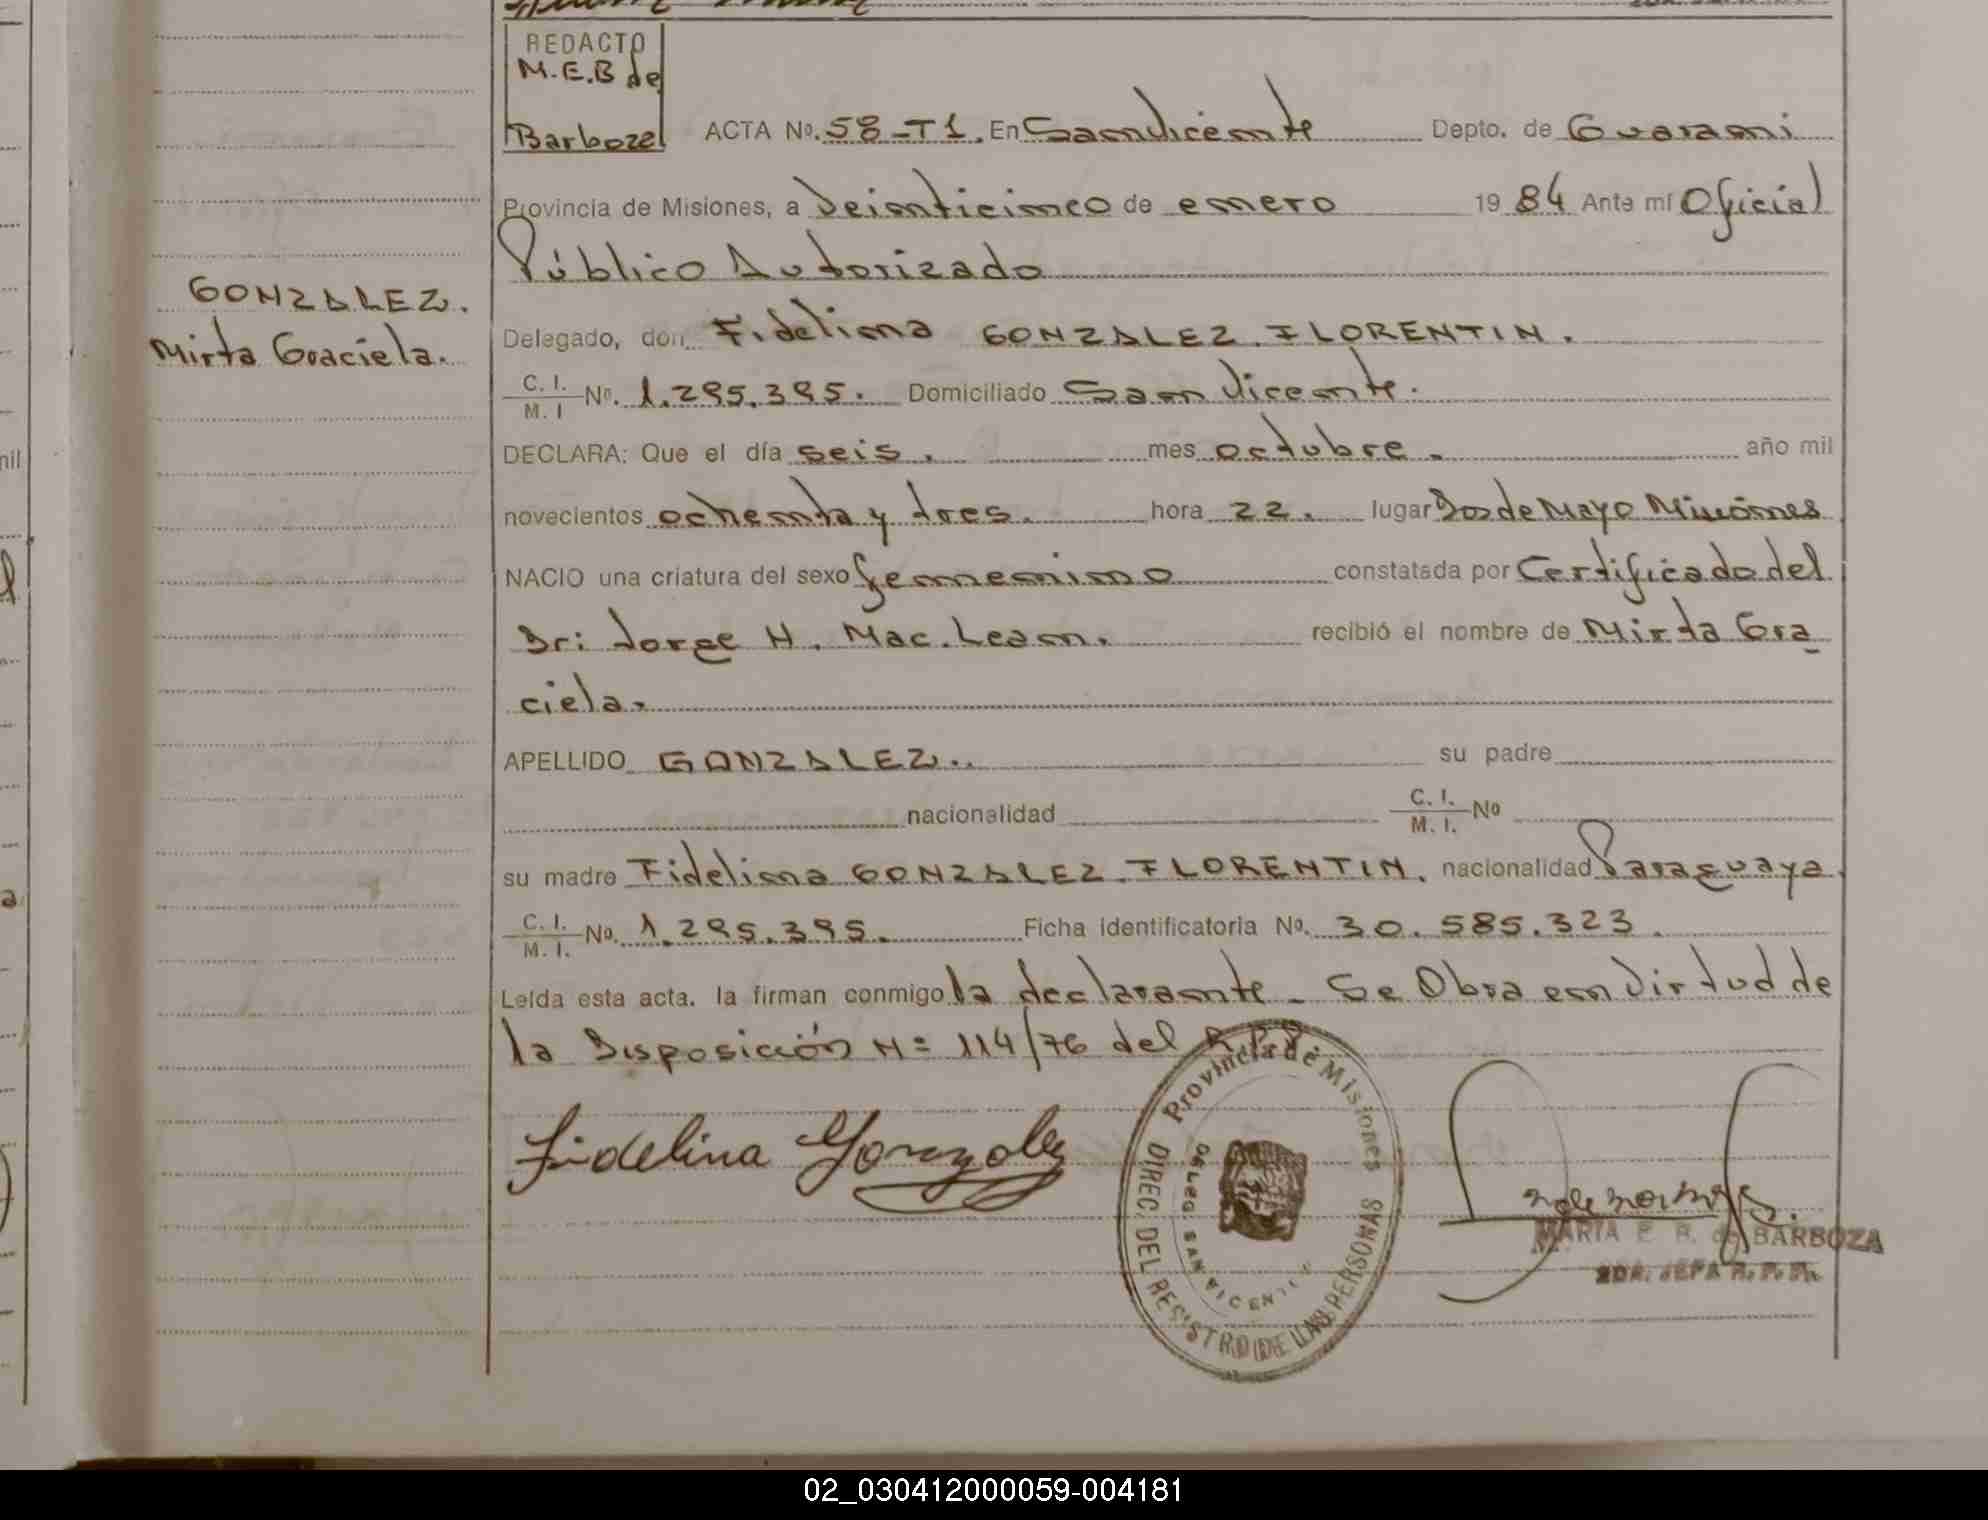 REDACTO
M.E.B de
Barboza
ACTA No. 58-T1. En San Vicente Depto. de Guarani
Provincia de Misiones, a Veinticinco de enero 1984 Ante mí Oficial
Público Autorizado
GONZALEZ.
Mirta Graciela.
Delegado, don Fidelina GONZALEZ FLORENTIN.
C. I. / M. I No. 1.295.395. Domiciliado San Vicente.
DECLARA: Que el día seis. mes octubre. año mil
novecientos ochenta y tres. hora 22. lugar Dos de Mayo Misiones
NACIO una criatura del sexo femenino constatada por Certificado del
Dr: Jorge H. Mac. Lean. recibió el nombre de Mirta Gra
ciela.
APELLIDO GONZALEZ.. su padre
nacionalidad C. I. / M. I. No
su madre Fidelina GONZALEZ FLORENTIN. nacionalidad Paraguaya
C. I. / M. I. No. 1.295.395. Ficha identificatoria No. 30.585.323.
Leída esta acta. la firman conmigo la declarante - Se Obra en Virtud de
la Disposición Nº 114/76 del R.P.P
Fidelina Gonzalez
Provincia de Misiones
DIREC. DEL REGISTRO DE LAS PERSONAS
DELEG. SAN VICENTE
MARIA E. B. de BARBOZA
2DA. JEFA R.P.P.
nil
a
02_030412000059-004181